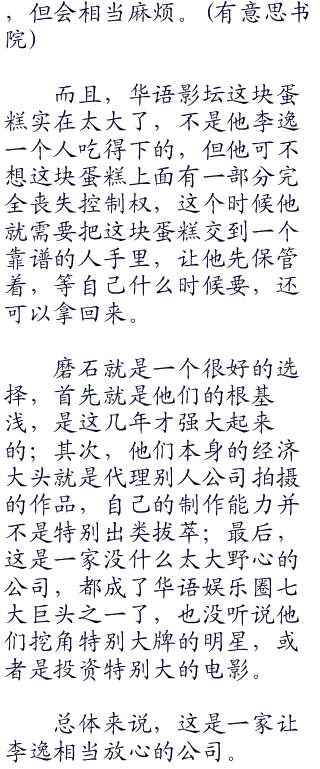 ，但会相当麻烦。（有意思书
院）
而且，华语影坛这块蛋
糕实在太大了，不是他李逸
一个人吃得下的，但他可不
想这块蛋糕上面有一部分完
全丧失控制权，这个时候他
就需要把这块蛋糕交到一个
靠谱的人手里，让他先保管
着，等自己什么时候要，还
可以拿回来。
磨石就是一个很好的选
择，首先就是他们的根基
浅，是这几年才强大起来
的；其次，他们本身的经济
大头就是代理别人公司拍摄
的作品，自己的制作能力并
不是特别出类拔萃；最后，
这是一家没什么太大野心的
公司，都成了华语娱乐圈七
大巨头之一了，也没听说他
们挖角特别大牌的明星，或
者是投资特别大的电影。
总体来说，这是一家让
李逸相当放心的公司。